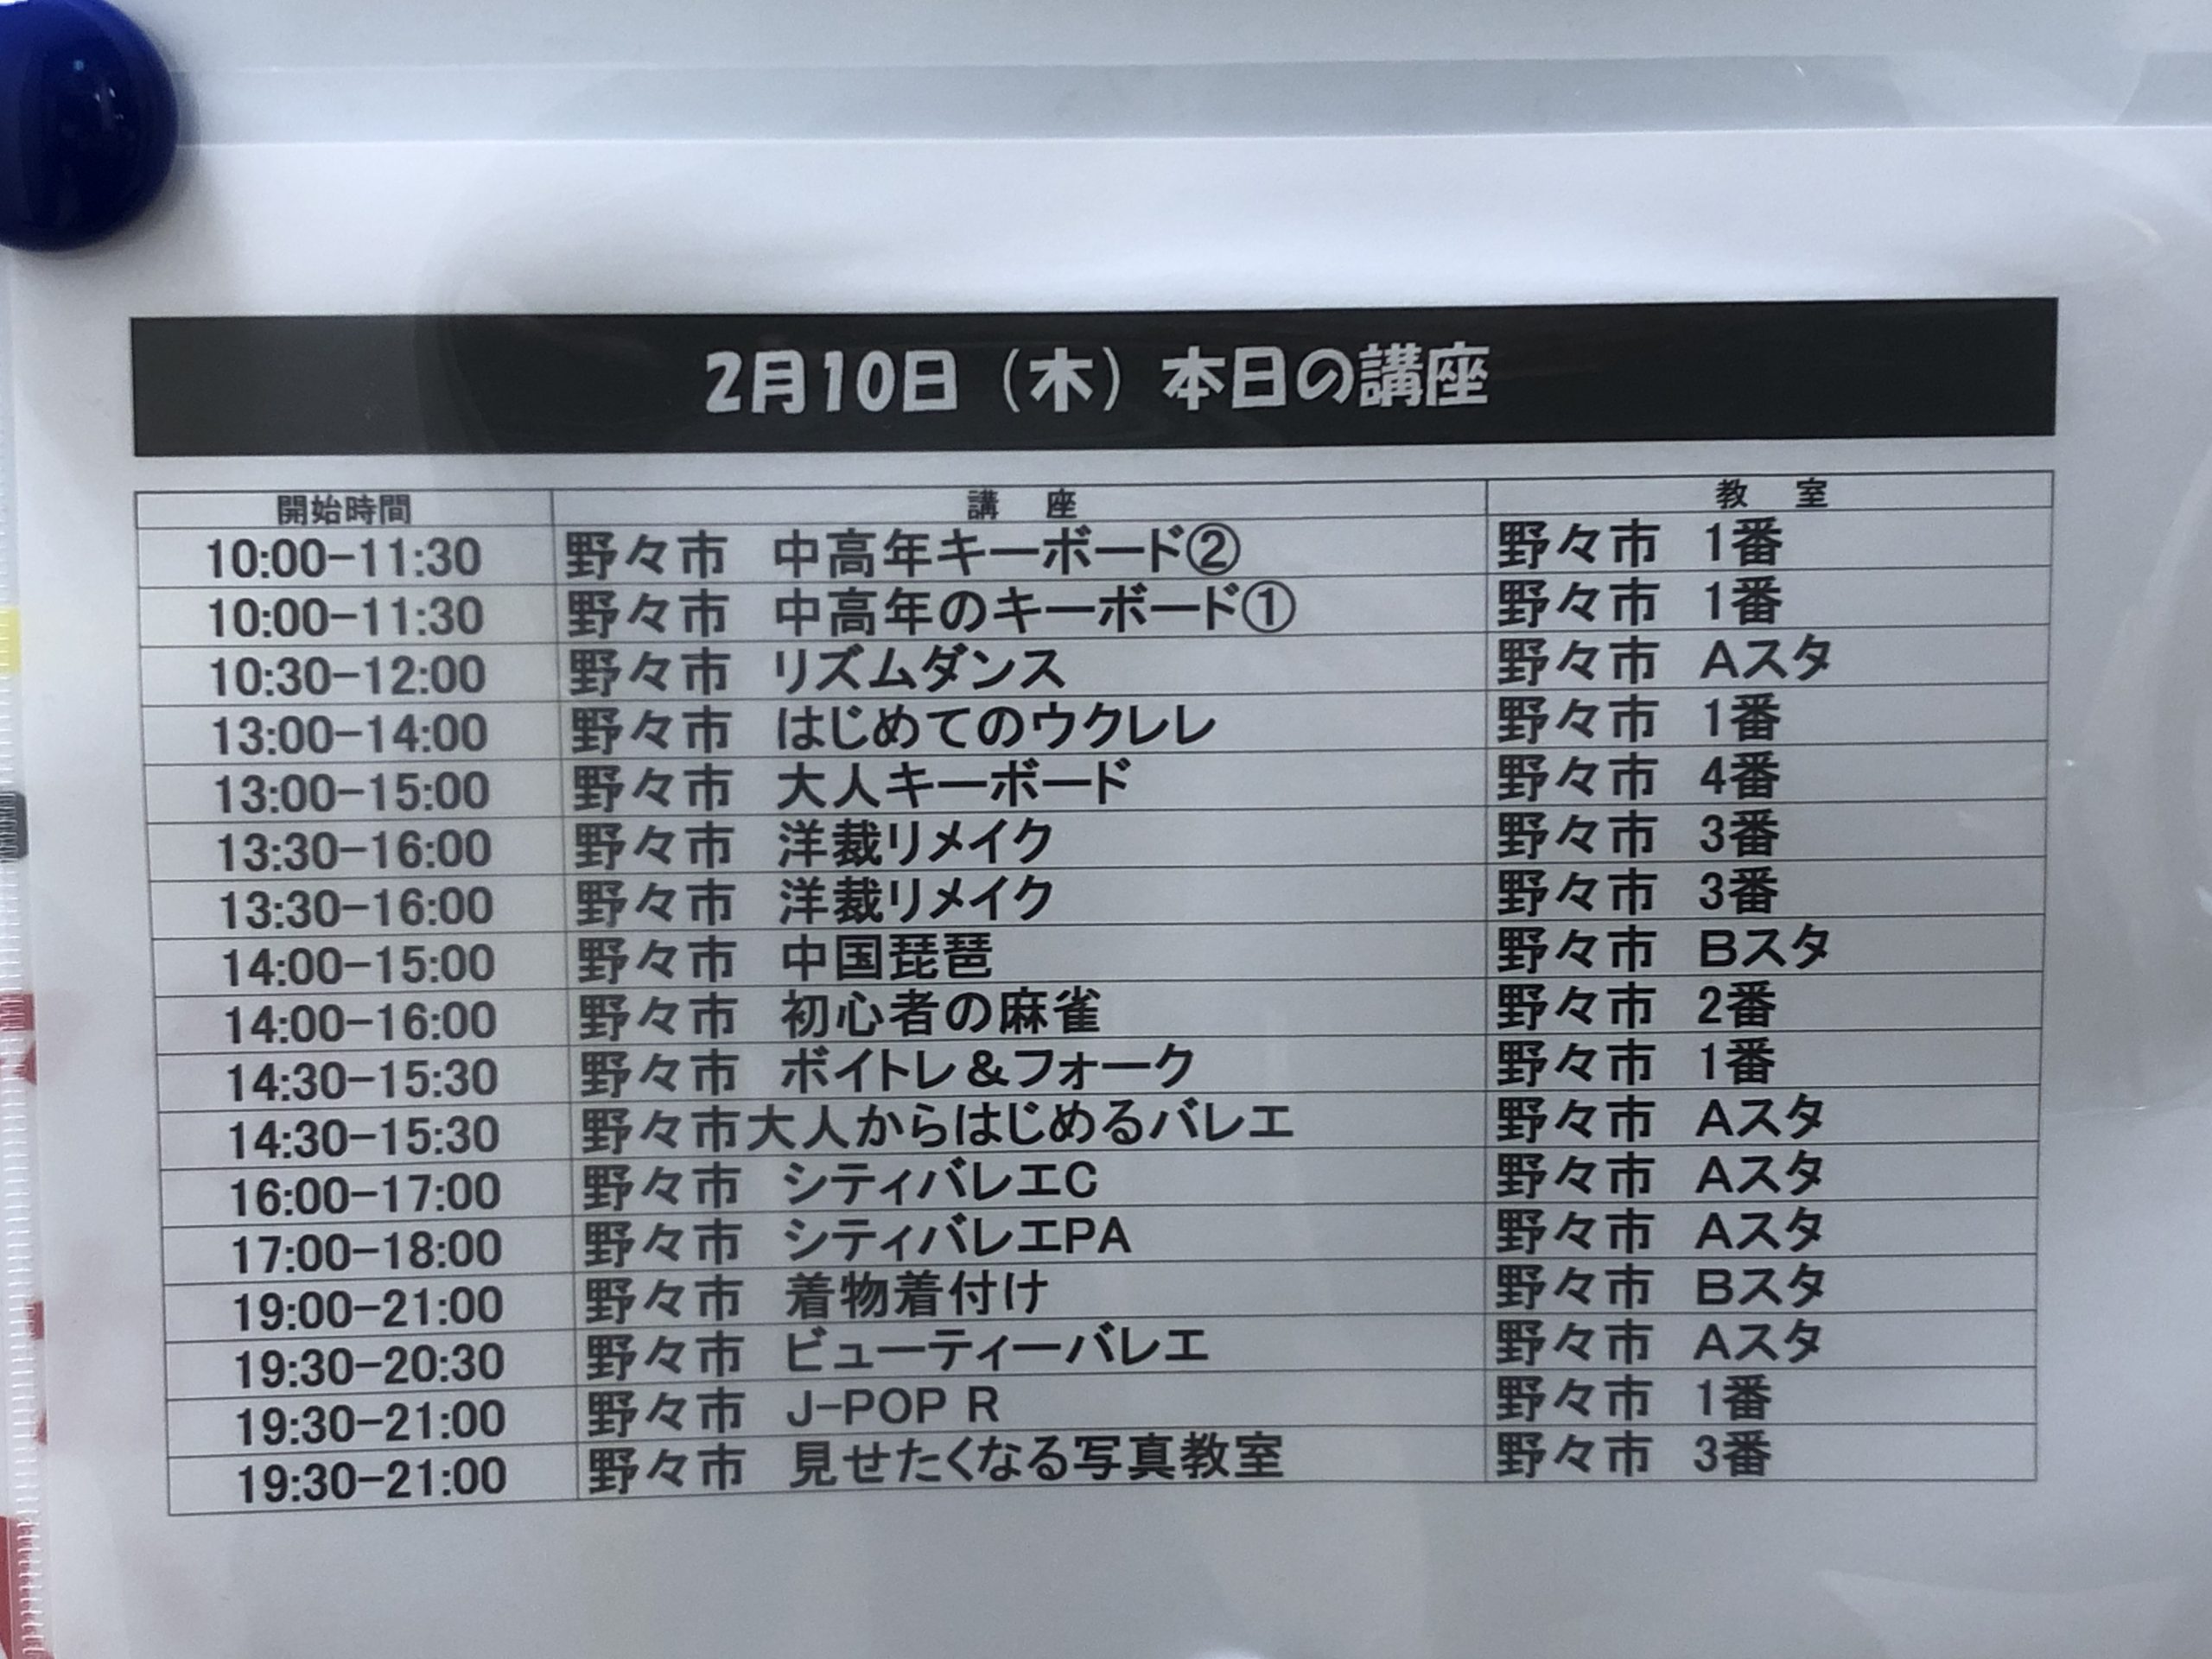 2月10日（木）本日の講座
開始時間 講 座 教 室
10:00-11:30 野々市 中高年キーボード② 野々市 1番
10:00-11:30 野々市 中高年のキーボード① 野々市 1番
10:30-12:00 野々市 リズムダンス 野々市 Aスタ
13:00-14:00 野々市 はじめてのウクレレ 野々市 1番
13:00-15:00 野々市 大人キーボード 野々市 4番
13:30-16:00 野々市 洋裁リメイク 野々市 3番
13:30-16:00 野々市 洋裁リメイク 野々市 3番
14:00-15:00 野々市 中国琵琶 野々市 Bスタ
14:00-16:00 野々市 初心者の麻雀 野々市 2番
14:30-15:30 野々市 ボイトレ＆フォーク 野々市 1番
14:30-15:30 野々市大人からはじめるバレエ 野々市 Aスタ
16:00-17:00 野々市 シティバレエC 野々市 Aスタ
17:00-18:00 野々市 シティバレエPA 野々市 Aスタ
19:00-21:00 野々市 着物着付け 野々市 Bスタ
19:30-20:30 野々市 ビューティーバレエ 野々市 Aスタ
19:30-21:00 野々市 J-POP R 野々市 1番
19:30-21:00 野々市 見せたくなる写真教室 野々市 3番